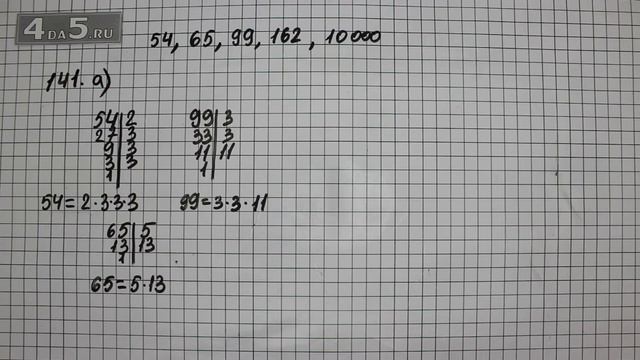 4DA5.RU
54, 65, 99, 162, 10000
141. а)
54 | 2
27 | 3
9 | 3
3 | 3
1 |
99 | 3
33 | 3
11 | 11
1 |
54 = 2·3·3·3
99 = 3·3·11
65 | 5
13 | 13
1 |
65 = 5·13